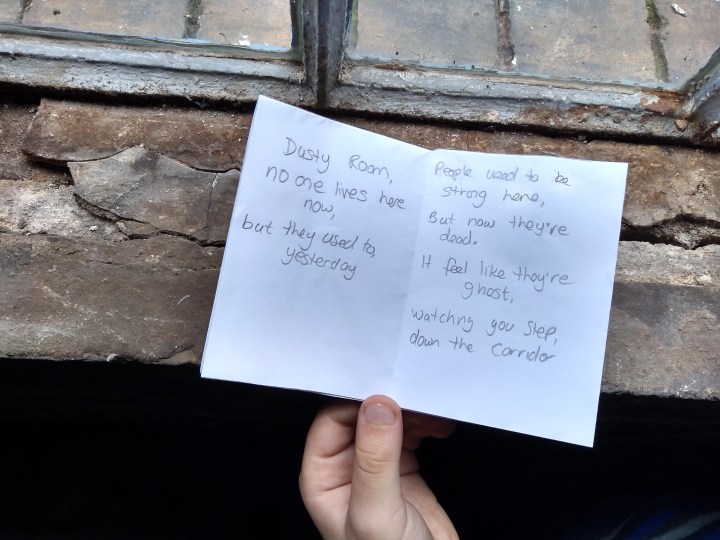 Dusty Room,
no one lives here
now,
but they used to,
yesterday
People used to be
strong here,
But now they're
dead.
It feel like they're
ghost,
watching you step,
down the Corridor